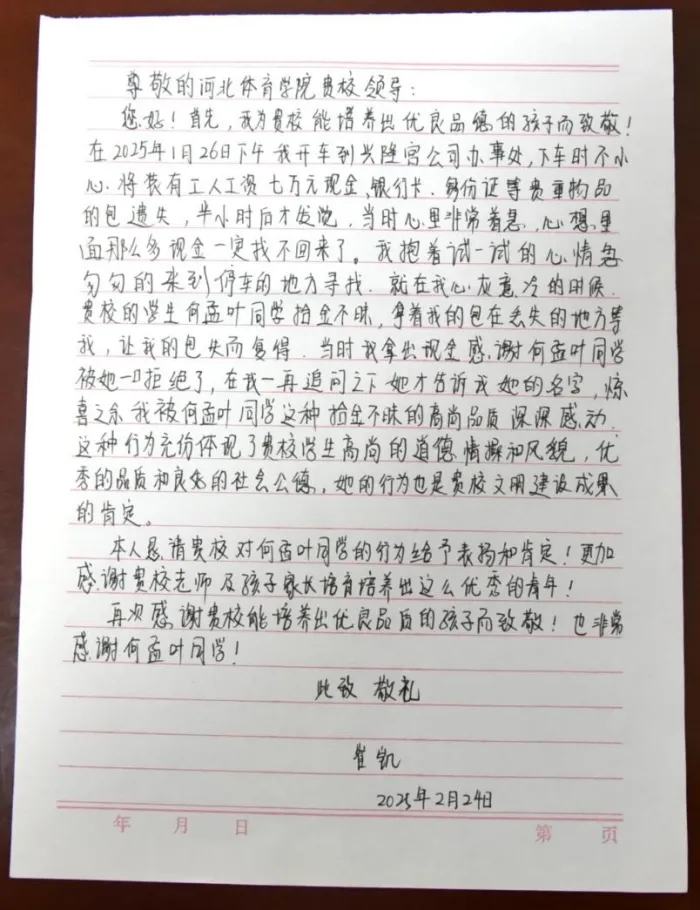 尊敬的河北体育学院贵校领导：
您好！首先，我为贵校能培养出优良品德的孩子而致敬！
在2025年1月26日下午我开车到兴隆宫公司办事处，下车时不小
心将装有工人工资七万元现金、银行卡、身份证等贵重物品
的包遗失，半小时后才发觉，当时心里非常着急，心想里
面那么多现金一定找不回来了。我抱着试一试的心情急
匆匆的来到停车的地方寻找．就在我心灰意冷的时候．
贵校的学生何孟叶同学拾金不昧，拿着我的包在丢失的地方等
我，让我的包失而复得．当时我拿出现金感谢何孟叶同学
被她一口拒绝了，在我一再追问之下她才告诉我她的名字，惊
喜之余我被何孟叶同学这种拾金不昧的高尚品质深深感动．
这种行为充份体现了贵校学生高尚的道德情操和风貌，优
秀的品质和良好的社会公德，她的行为也是贵校文明建设成果
的肯定。
本人恳请贵校对何孟叶同学的行为给予表扬和肯定！更加
感谢贵校老师及孩子家长培育培养出这么优秀的青年！
再次感谢贵校能培养出优良品质的孩子而致敬！也非常
感谢何孟叶同学！
此致 敬礼
崔凯
2025年2月24日
年 月 日 第 页